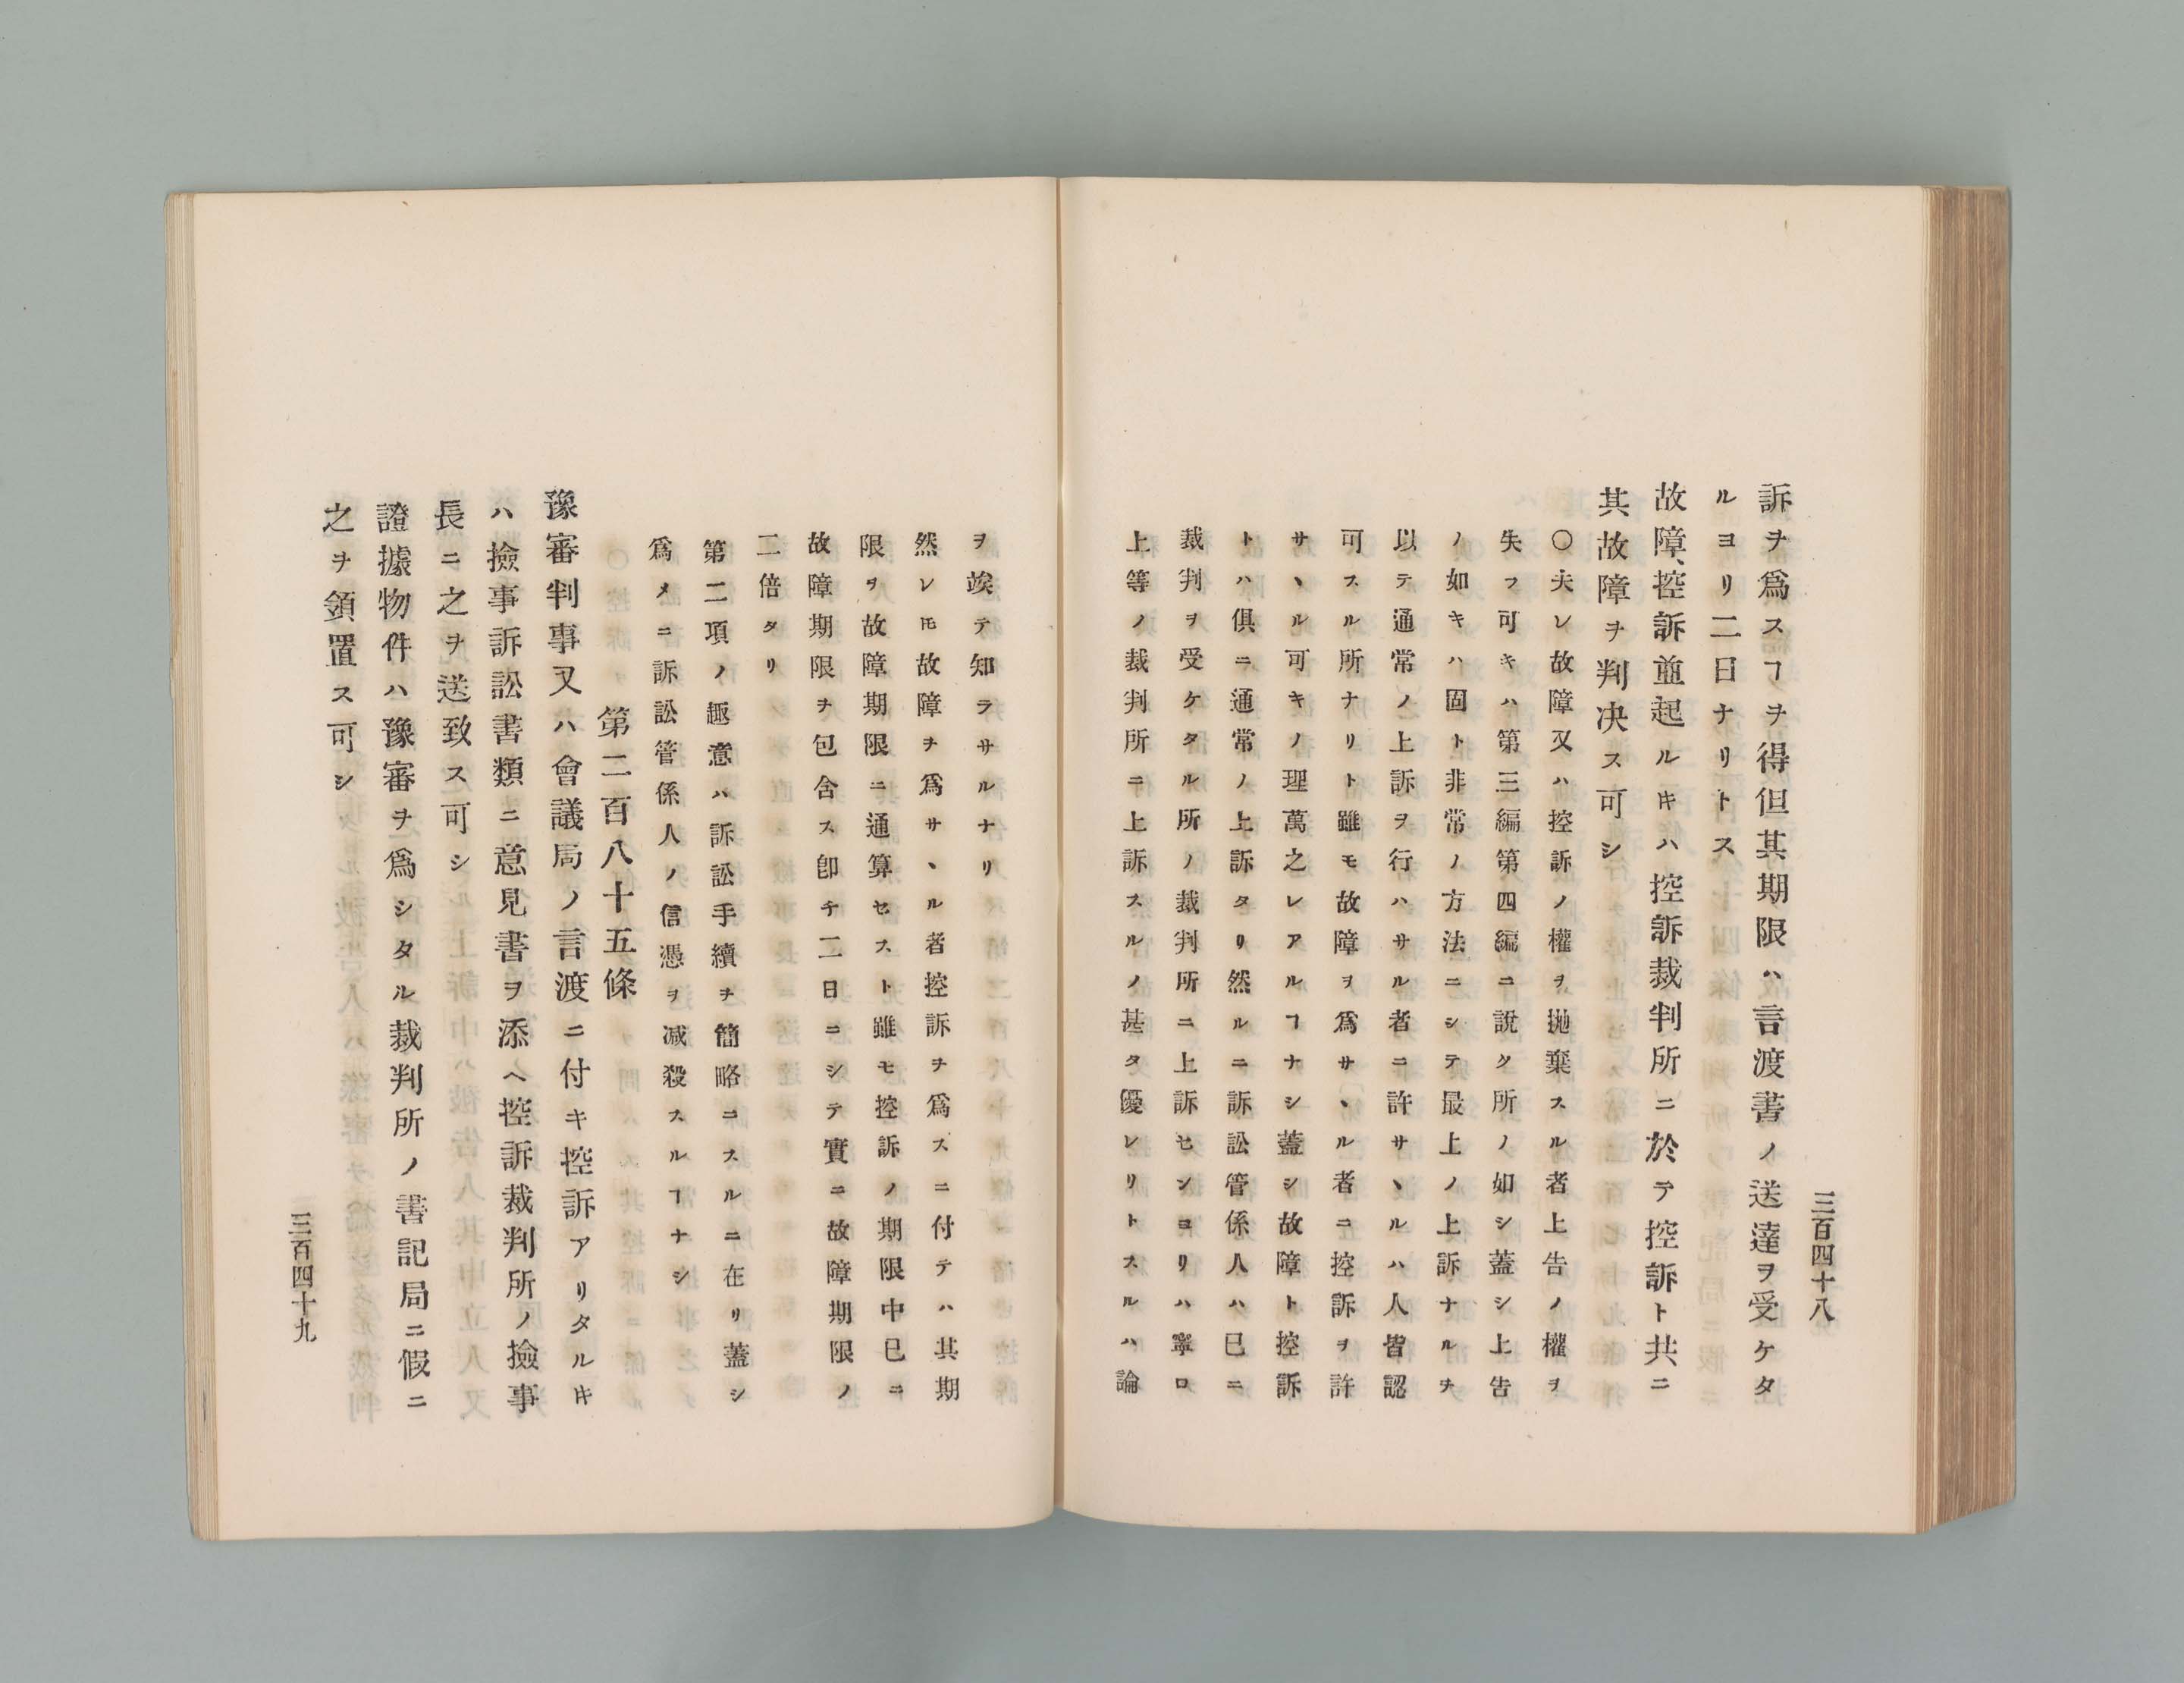 三百四十八
訴ヲ爲スヿヲ得但其期限ハ言渡書ノ送達ヲ受ケタ
ルヨリ二日ナリトス
故障、控訴並起ルキハ控訴裁判所ニ於テ控訴ト共ニ
其故障ヲ判决ス可シ
〇夫レ故障又ハ控訴ノ權ヲ抛棄スル者上告ノ權ヲ
失フ可キハ第三編第四編ニ說ク所ノ如シ蓋シ上告
ノ如キハ固ト非常ノ方法ニシテ最上ノ上訴ナルヲ
以テ通常ノ上訴ヲ行ハサル者ニ許サヽルハ人皆認
可スル所ナリト雖モ故障ヲ爲サヽル者ニ控訴ヲ許
サヽル可キノ理萬之レアルヿナシ蓋シ故障ト控訴
トハ俱ニ通常ノ上訴タリ然ルニ訴訟管係人ハ已ニ
裁判ヲ受ケタル所ノ裁判所ニ上訴センヨリハ寧ロ
上等ノ裁判所ニ上訴スルノ甚タ優レリトスルハ論
ヲ竢テ知ラサルナリ
然レ𪜈故障ヲ爲サヽル者控訴ヲ爲スニ付テハ其期
限ヲ故障期限ニ通算セスト雖モ控訴ノ期限中已ニ
故障期限ヲ包含ス卽チ二日ニシテ實ニ故障期限ノ
二倍タリ
第二項ノ趣意ハ訴訟手續ヲ簡略ニスルニ在リ蓋シ
爲メニ訴訟管係人ノ信憑ヲ减殺スルヿナシ
第二百八十五條
豫審判事又ハ會議局ノ言渡ニ付キ控訴アリタルキ
ハ撿事訴訟書類ニ意見書ヲ添ヘ控訴裁判所ノ撿事
長ニ之ヲ送致ス可シ
證據物件ハ豫審ヲ爲シタル裁判所ノ書記局ニ假ニ
之ヲ領置ス可シ
三百四十九